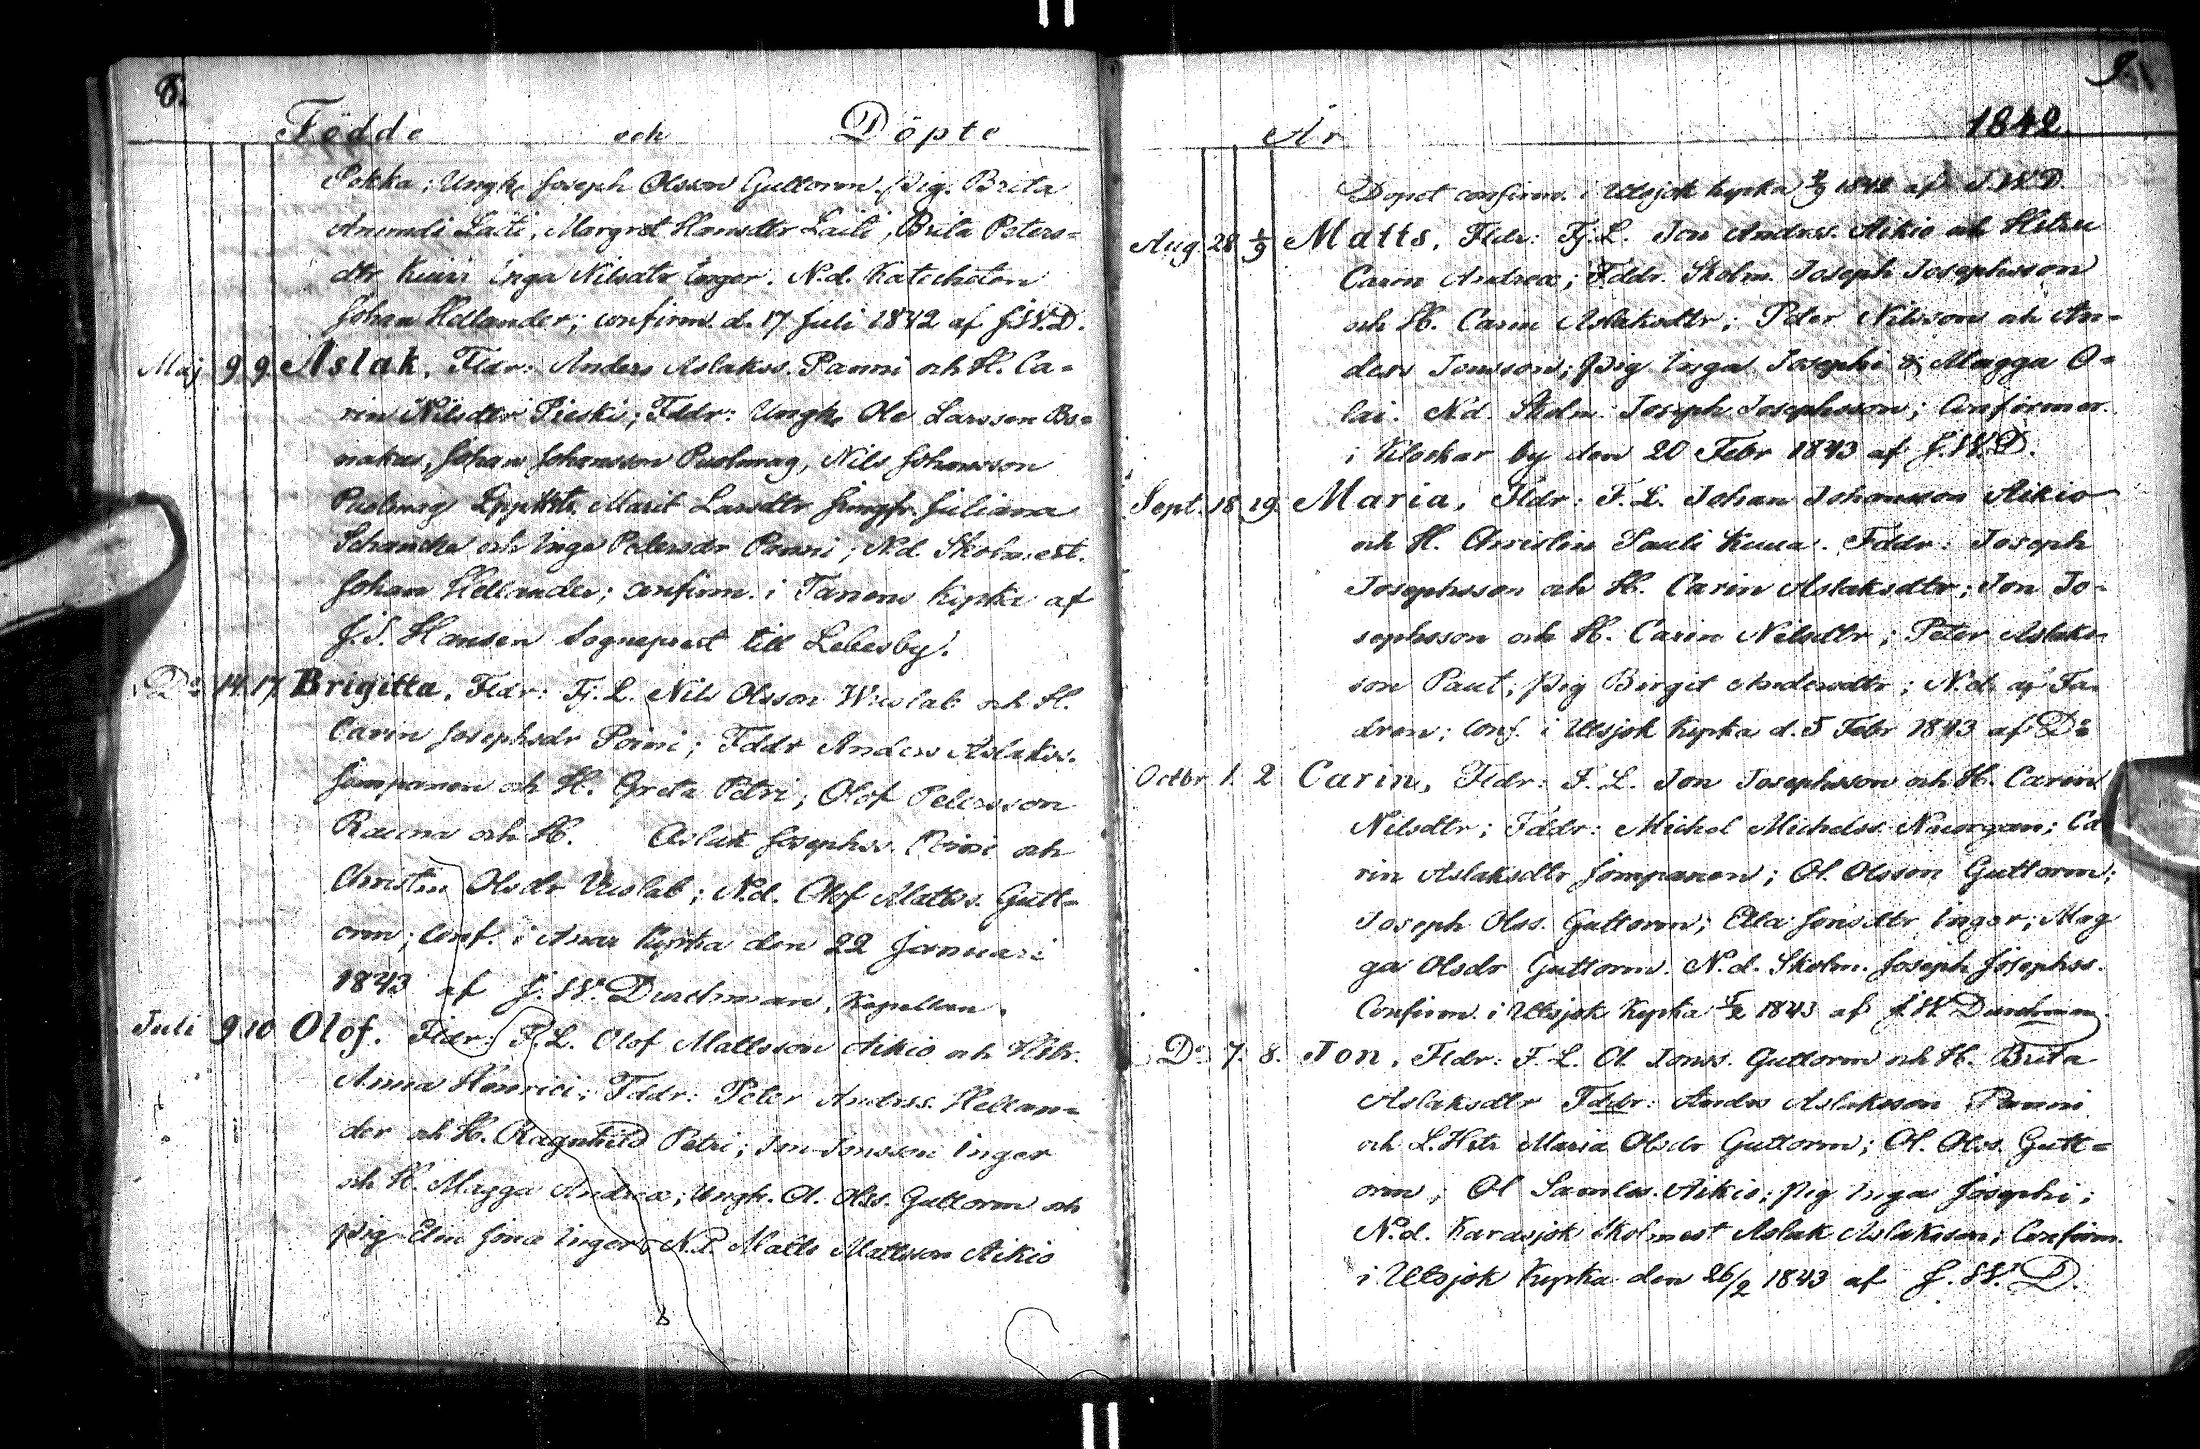 8.
Födde och Döpte
Pekka; Ungk. Joseph Olsson Guttorm. Pig. Brita
Amundi Laiti, Margret Hansdtr Laiti, Brita Peters=
dtr Inga Nilsdtr Inger. N.d. Katecheten
Johan Hellander; confirm. d. 17 Juli 1842 af J.W.D.
Maj 9 9 Aslak, Fldr: Anders Aslakss. Panni och H. Ca=
rin Nilsdtr Pieski; Fddr: Ungk. Ole Larsson Bo=
nakas, Johan Johansson Puolmag, Nils Johansson
Puolmag Marit Larsdtr Jungfr. Juliana
Schancke och Inga Petersdr Panni; N.d. Skolmest.
Johan Hellander; confirm. i Tanens Kyrka af
J.S. Hansen Sogneprest till Lebesby.
Do 14 17 Brigitta, Fldr: Fj. L. Nils Olsson Wuolab och H.
Carin Josephsdr Poimi; Fddr Anders Aslakss.
Jomppanen och H. Greta Petri; Olof Petersson
Rauna och H. Aslak Josephss. Poimi och
Christin Olsdr Vuolab; N.d. Olof Mattss. Gutt=
orm; Conf. i Anar Kyrka den 22 Januari
1843 af J.W. Durchman, Kapellan.
Juli 9 10 Olof. Fldr: F.L. Olof Mattsson Aikio och Hstr.
Anna Henrici; Fddr: Peter Andrss. Hellan=
der och H. Ragnhild Petri; Jon Jonsson Inger
och H. Magga Andreæ; Ungk. Ol. Olss. Guttorm och
Pig. Elin Jonæ Inger N.D. Matts Mattsson Aikio
9.
År 1842.
Dopet confirm. i Utsjok kyrka 1842 af J.W.D.
Aug. 28 1/9 Matts, Fldr: Fj. L. Jon Andrss. Aikio och Hstru
Carin Andreæ; Fddr. Skolm. Joseph Josephsson
och H. Carin Aslaksdtr; Peter Nilsson och An=
ders Jonsson; Pig Inga Josephi & Magga O=
lai. N.d. Skolm. Joseph Josephsson; Confirmer.
i Klockar by den 20 Febr 1843 af J.W.D.
Sept. 18 19 Maria, Fldr: F.L. Johan Johansson Aikio
och H. Christin Pauli Kuua. Fddr: Joseph
Josephsson och H. Carin Aslaksdtr; Jon Jo=
sephsson och H. Carin Nilsdtr; Peter Aslaks=
son Paut; Pig Birget Andersdtr; N.d. af Fa=
dren; Conf. i Utsjok Kyrka d. 5 Febr 1843 af Do
Octbr 1. 2 Carin, Fldr: F.L. Jon Josephsson och H. Carin
Nilsdtr; Fddr: Michel Michelss. Nuorgam; Ca
rin Aslaksdtr Jompanen; Ol. Olsson Guttorm;
Joseph Olss. Guttorm; Ella Jonsdtr Inger; Mag
ga Olsdr Guttorm. N.d. Skolm. Joseph Josephss.
Confirm. i Utsjok Kyrka 5/2 1843 af J.W. Durchman.
Do 7. 8. Jon, Fldr: F.L. Ol. Jonss. Guttorm och H. Brita
Aslaksdtr Fddr: Anders Aslaksson Panni
och L. Hstr Maria Olsdr Guttorm; Ol. Olss. Gutt=
orm; Ol Samlss. Aikio; Pig Inga Josephi;
N.d. Karasjok Skolmest Aslak Aslaksson; Confirm.
i Utsjok Kyrka den 26/2 1843 af J.W.D.